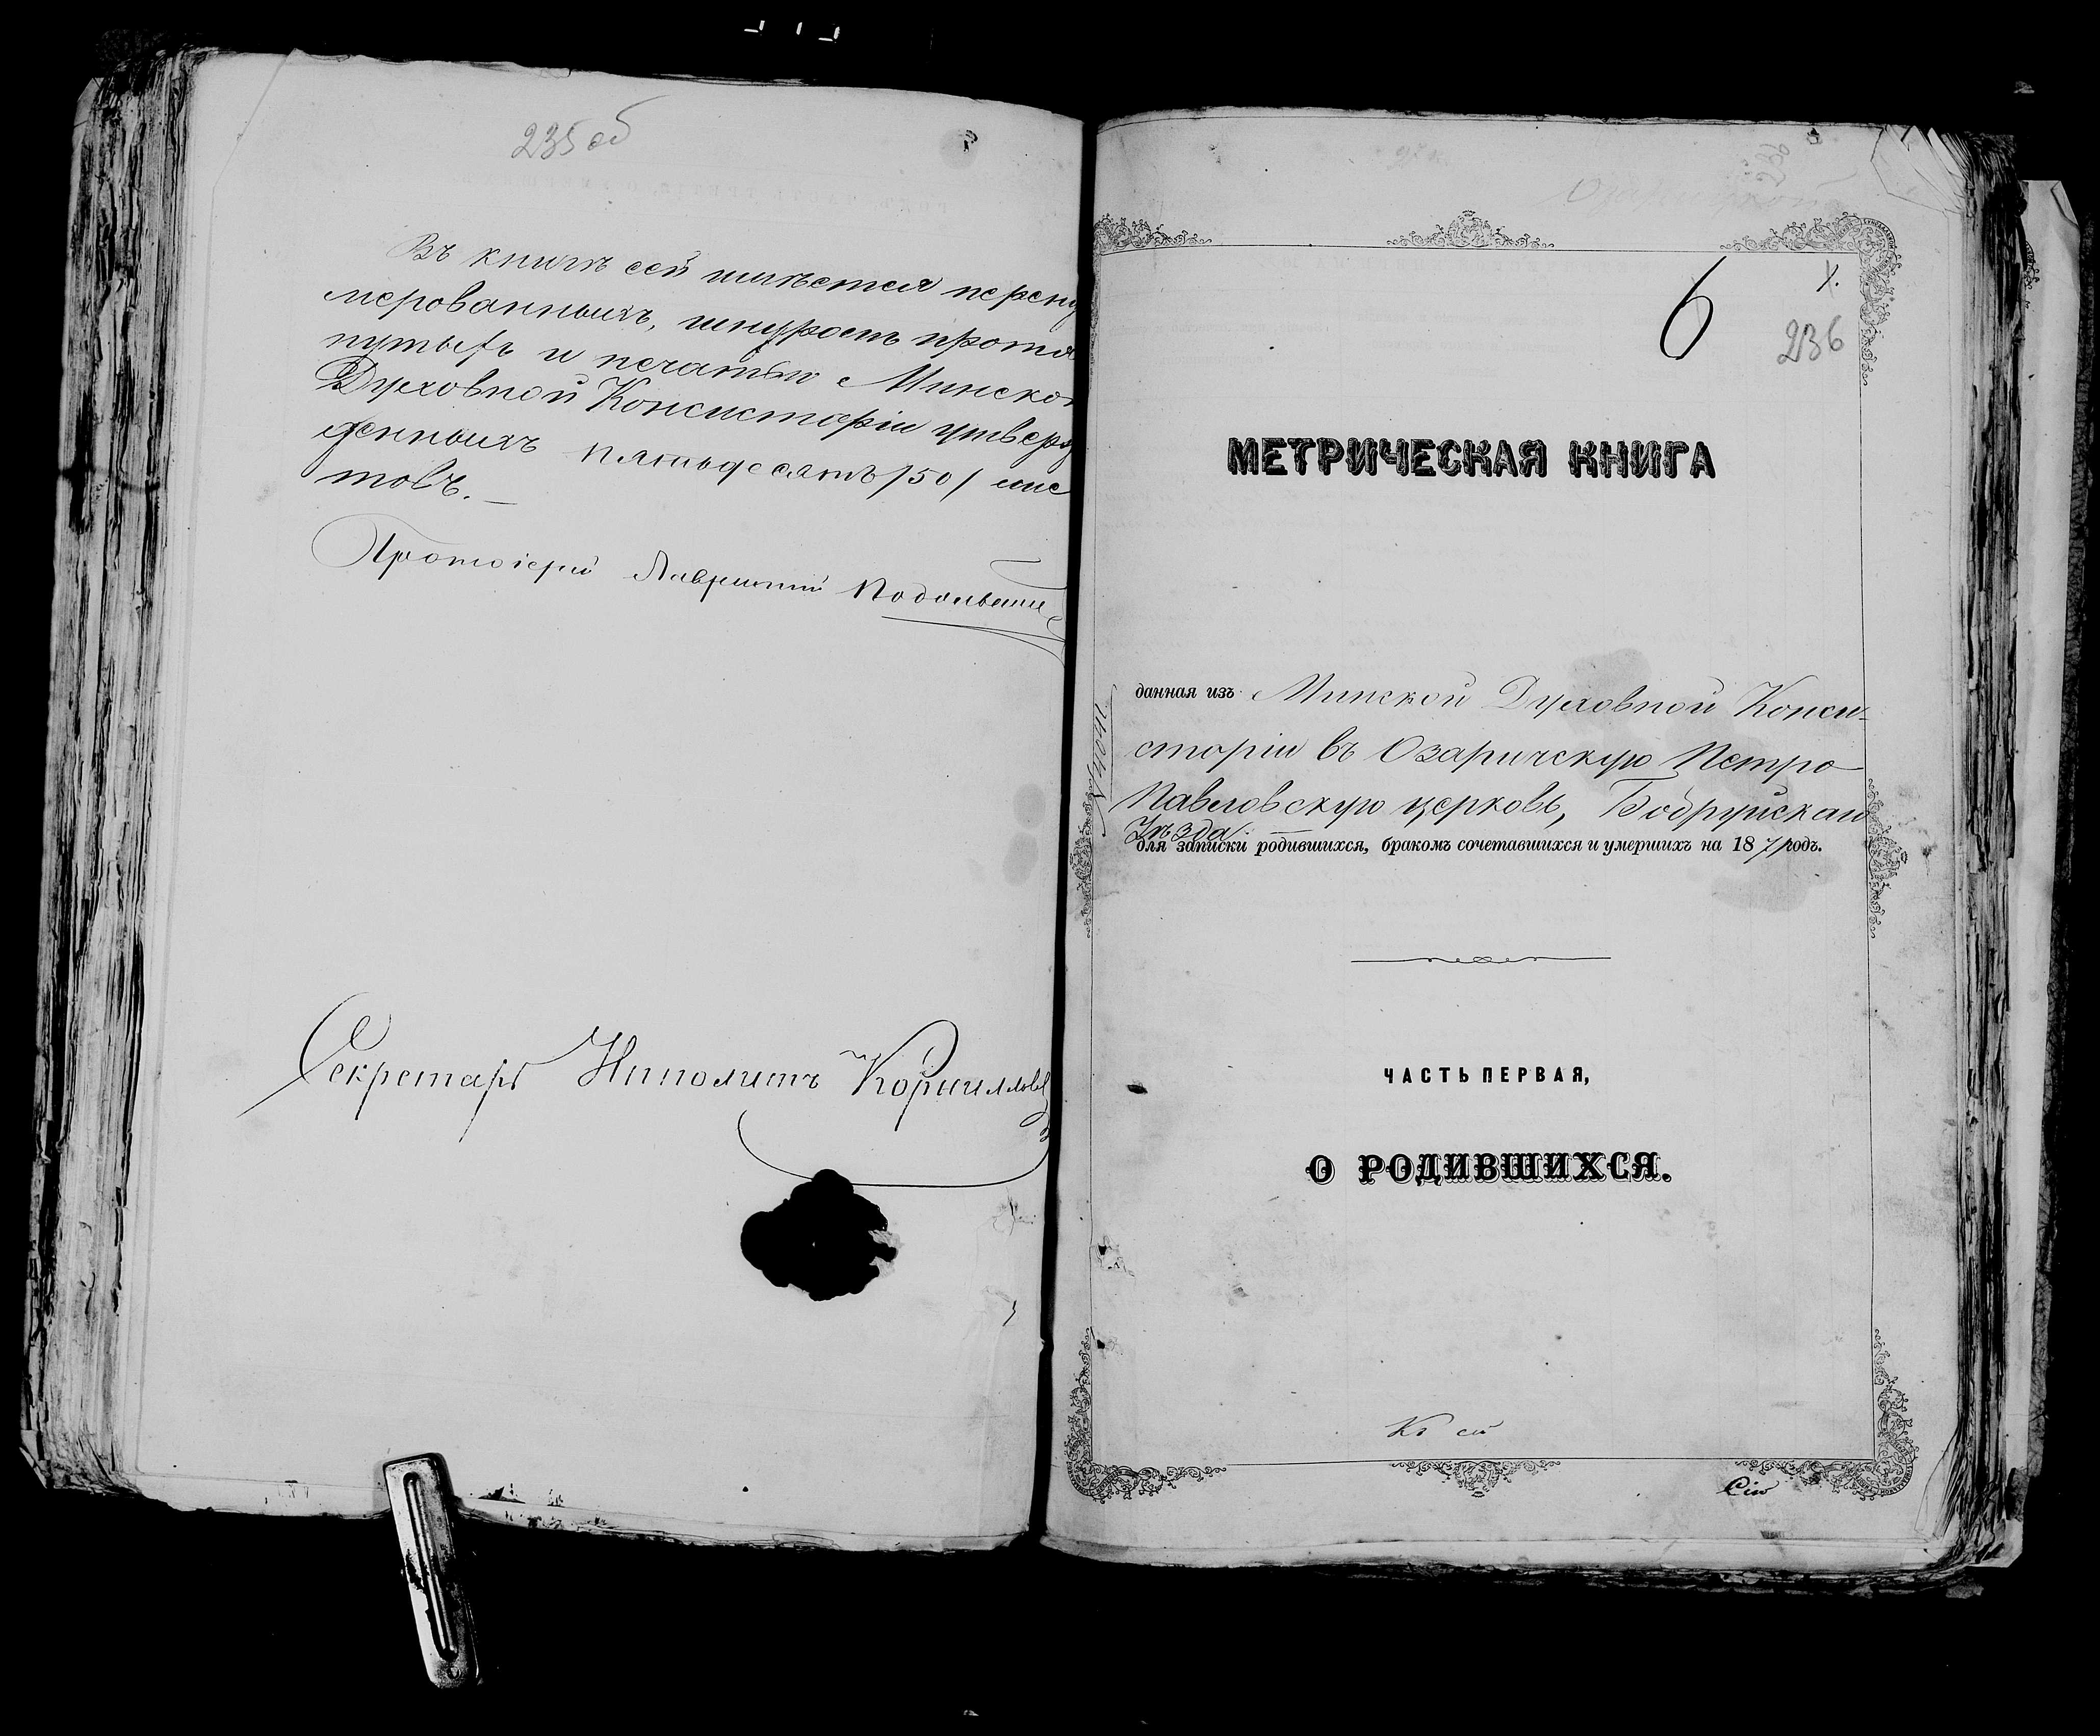 235 об
Въ книгѣ сей имѣется перену
мерованныхъ, шнуромъ протя
нутыхъ и печатью Минской
Духовной Консисторіи утверж
денныхъ пятьдесятъ /50/ лис
товъ.
Протоіерей Лаврентій Подольскій
Секретарь Ипполитъ Корнилловъ
Озаричской
6
1.
236
МЕТРИЧЕСКАЯ КНИГА
данная изъ Минской Духовной Конси-
сторіи въ Озаричскую Петро
Павловскую церковь, Бобруйскаго
Уѣзда.
для записки родившихся, бракомъ сочетавшихся и умершихъ на 1871 годъ.
ЧАСТЬ ПЕРВАЯ,
О РОДИВШИХСЯ.
Къ сей
Сію